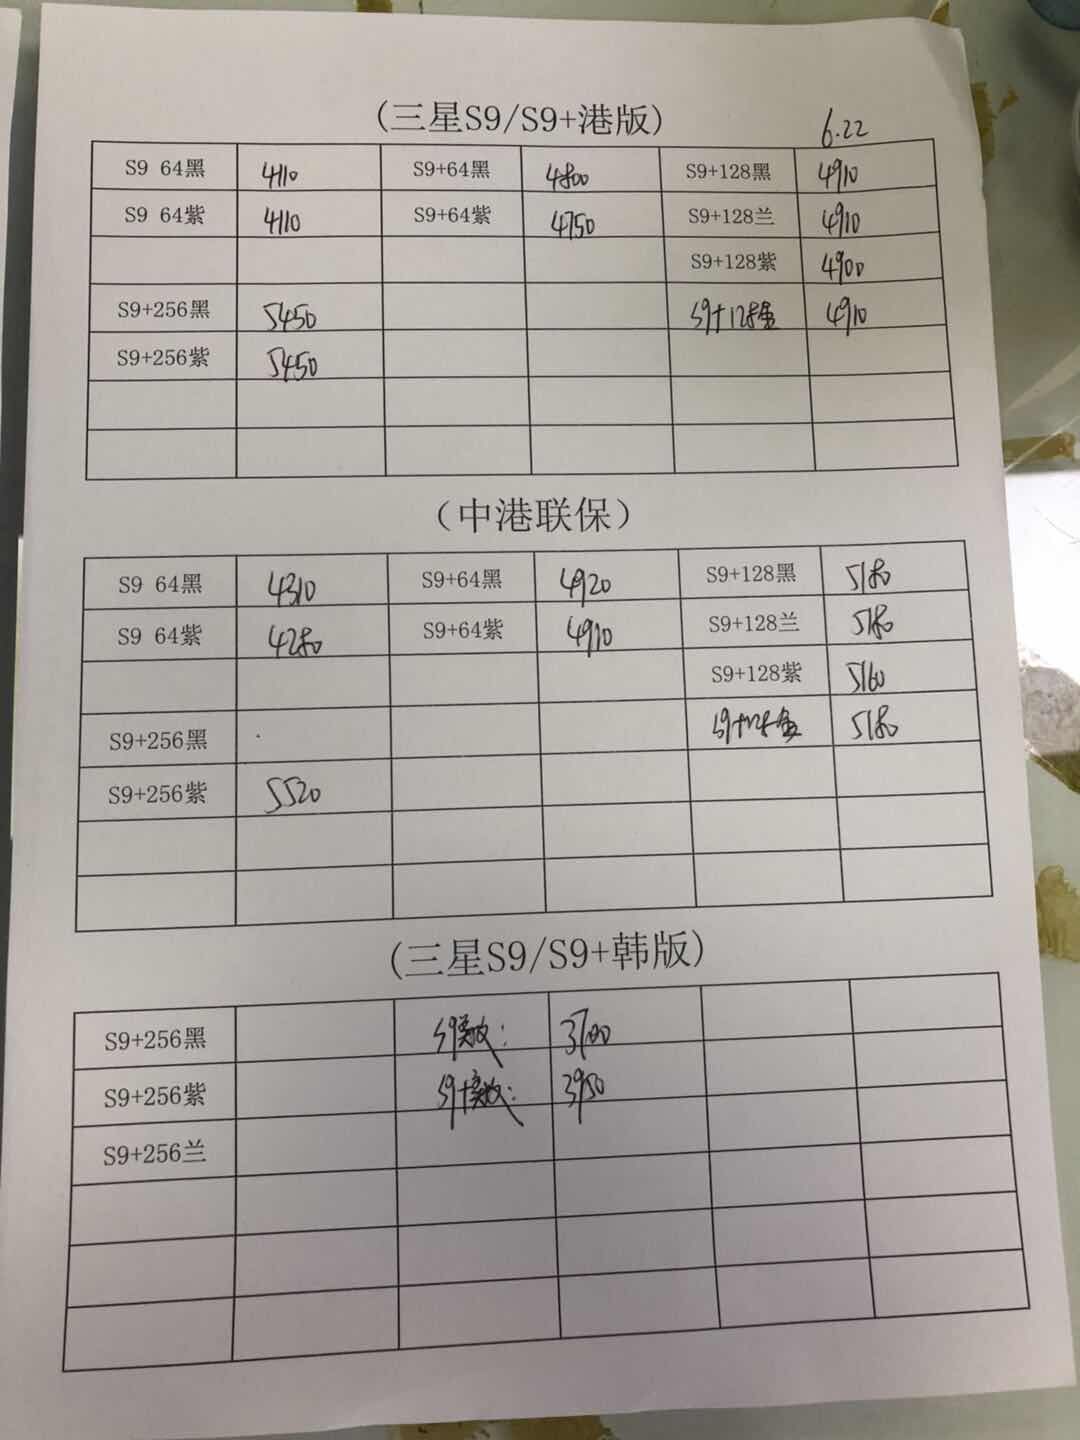 (三星S9/S9+港版)
6.22
S9 64黑 4110 S9+64黑 4800 S9+128黑 4910
S9 64紫 4110 S9+64紫 4750 S9+128兰 4910
S9+128紫 4900
S9+256黑 5450 S9+128金 4910
S9+256紫 5450
(中港联保)
S9 64黑 4310 S9+64黑 4920 S9+128黑 5180
S9 64紫 4280 S9+64紫 4910 S9+128兰 5180
S9+128紫 5160
S9+256黑 S9+128金 5180
S9+256紫 5520
(三星S9/S9+韩版)
S9+256黑 S9 : 3700
S9+256紫 S9+ : 3950
S9+256兰